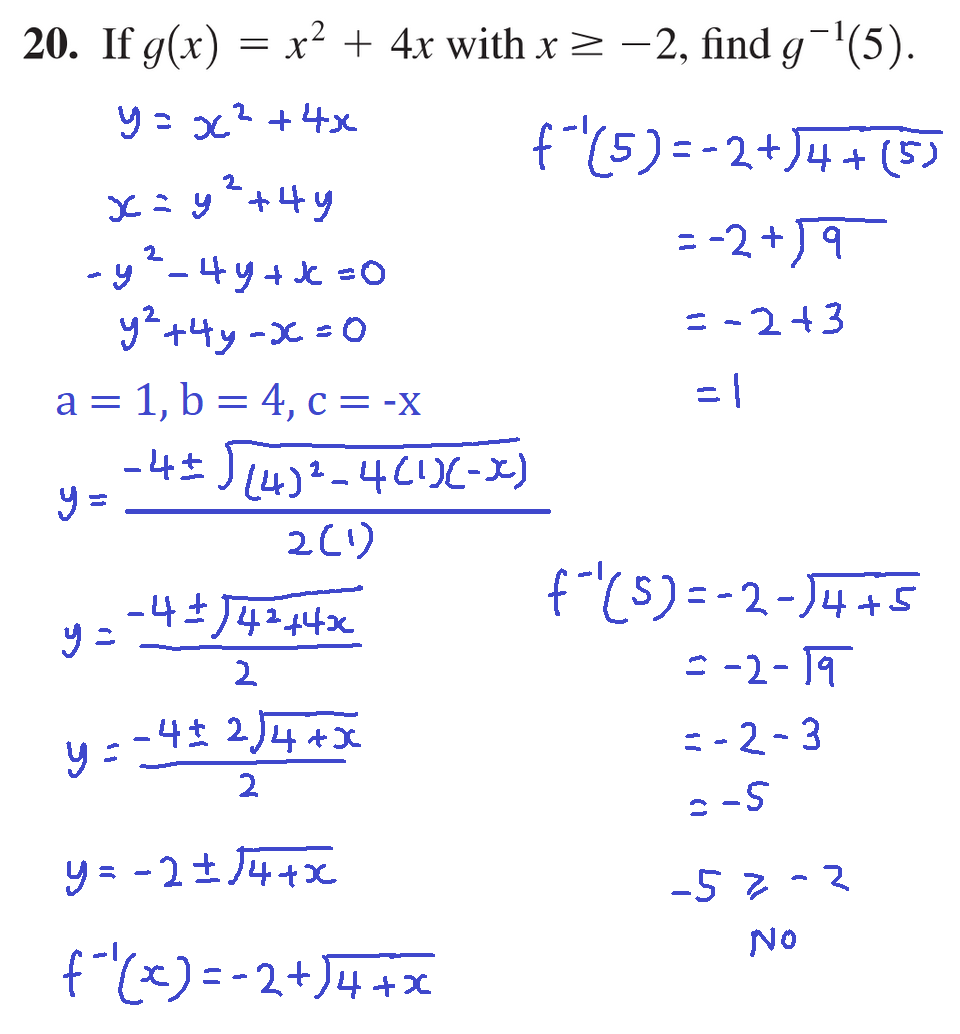 20. If g(x) = x² + 4x with x ≥ −2, find g⁻¹(5).
y = x² + 4x
x = y² + 4y
-y² - 4y + x = 0
y² + 4y - x = 0
a = 1, b = 4, c = -x
y = (-4 ± √((4)² - 4(1)(-x))) / 2(1)
y = (-4 ± √(4² + 4x)) / 2
y = (-4 ± 2√(4 + x)) / 2
y = -2 ± √(4 + x)
f⁻¹(x) = -2 + √(4 + x)
f⁻¹(5) = -2 + √(4 + (5))
= -2 + √9
= -2 + 3
= 1
f⁻¹(5) = -2 - √(4 + 5)
= -2 - √9
= -2 - 3
= -5
-5 ≥ -2
NO